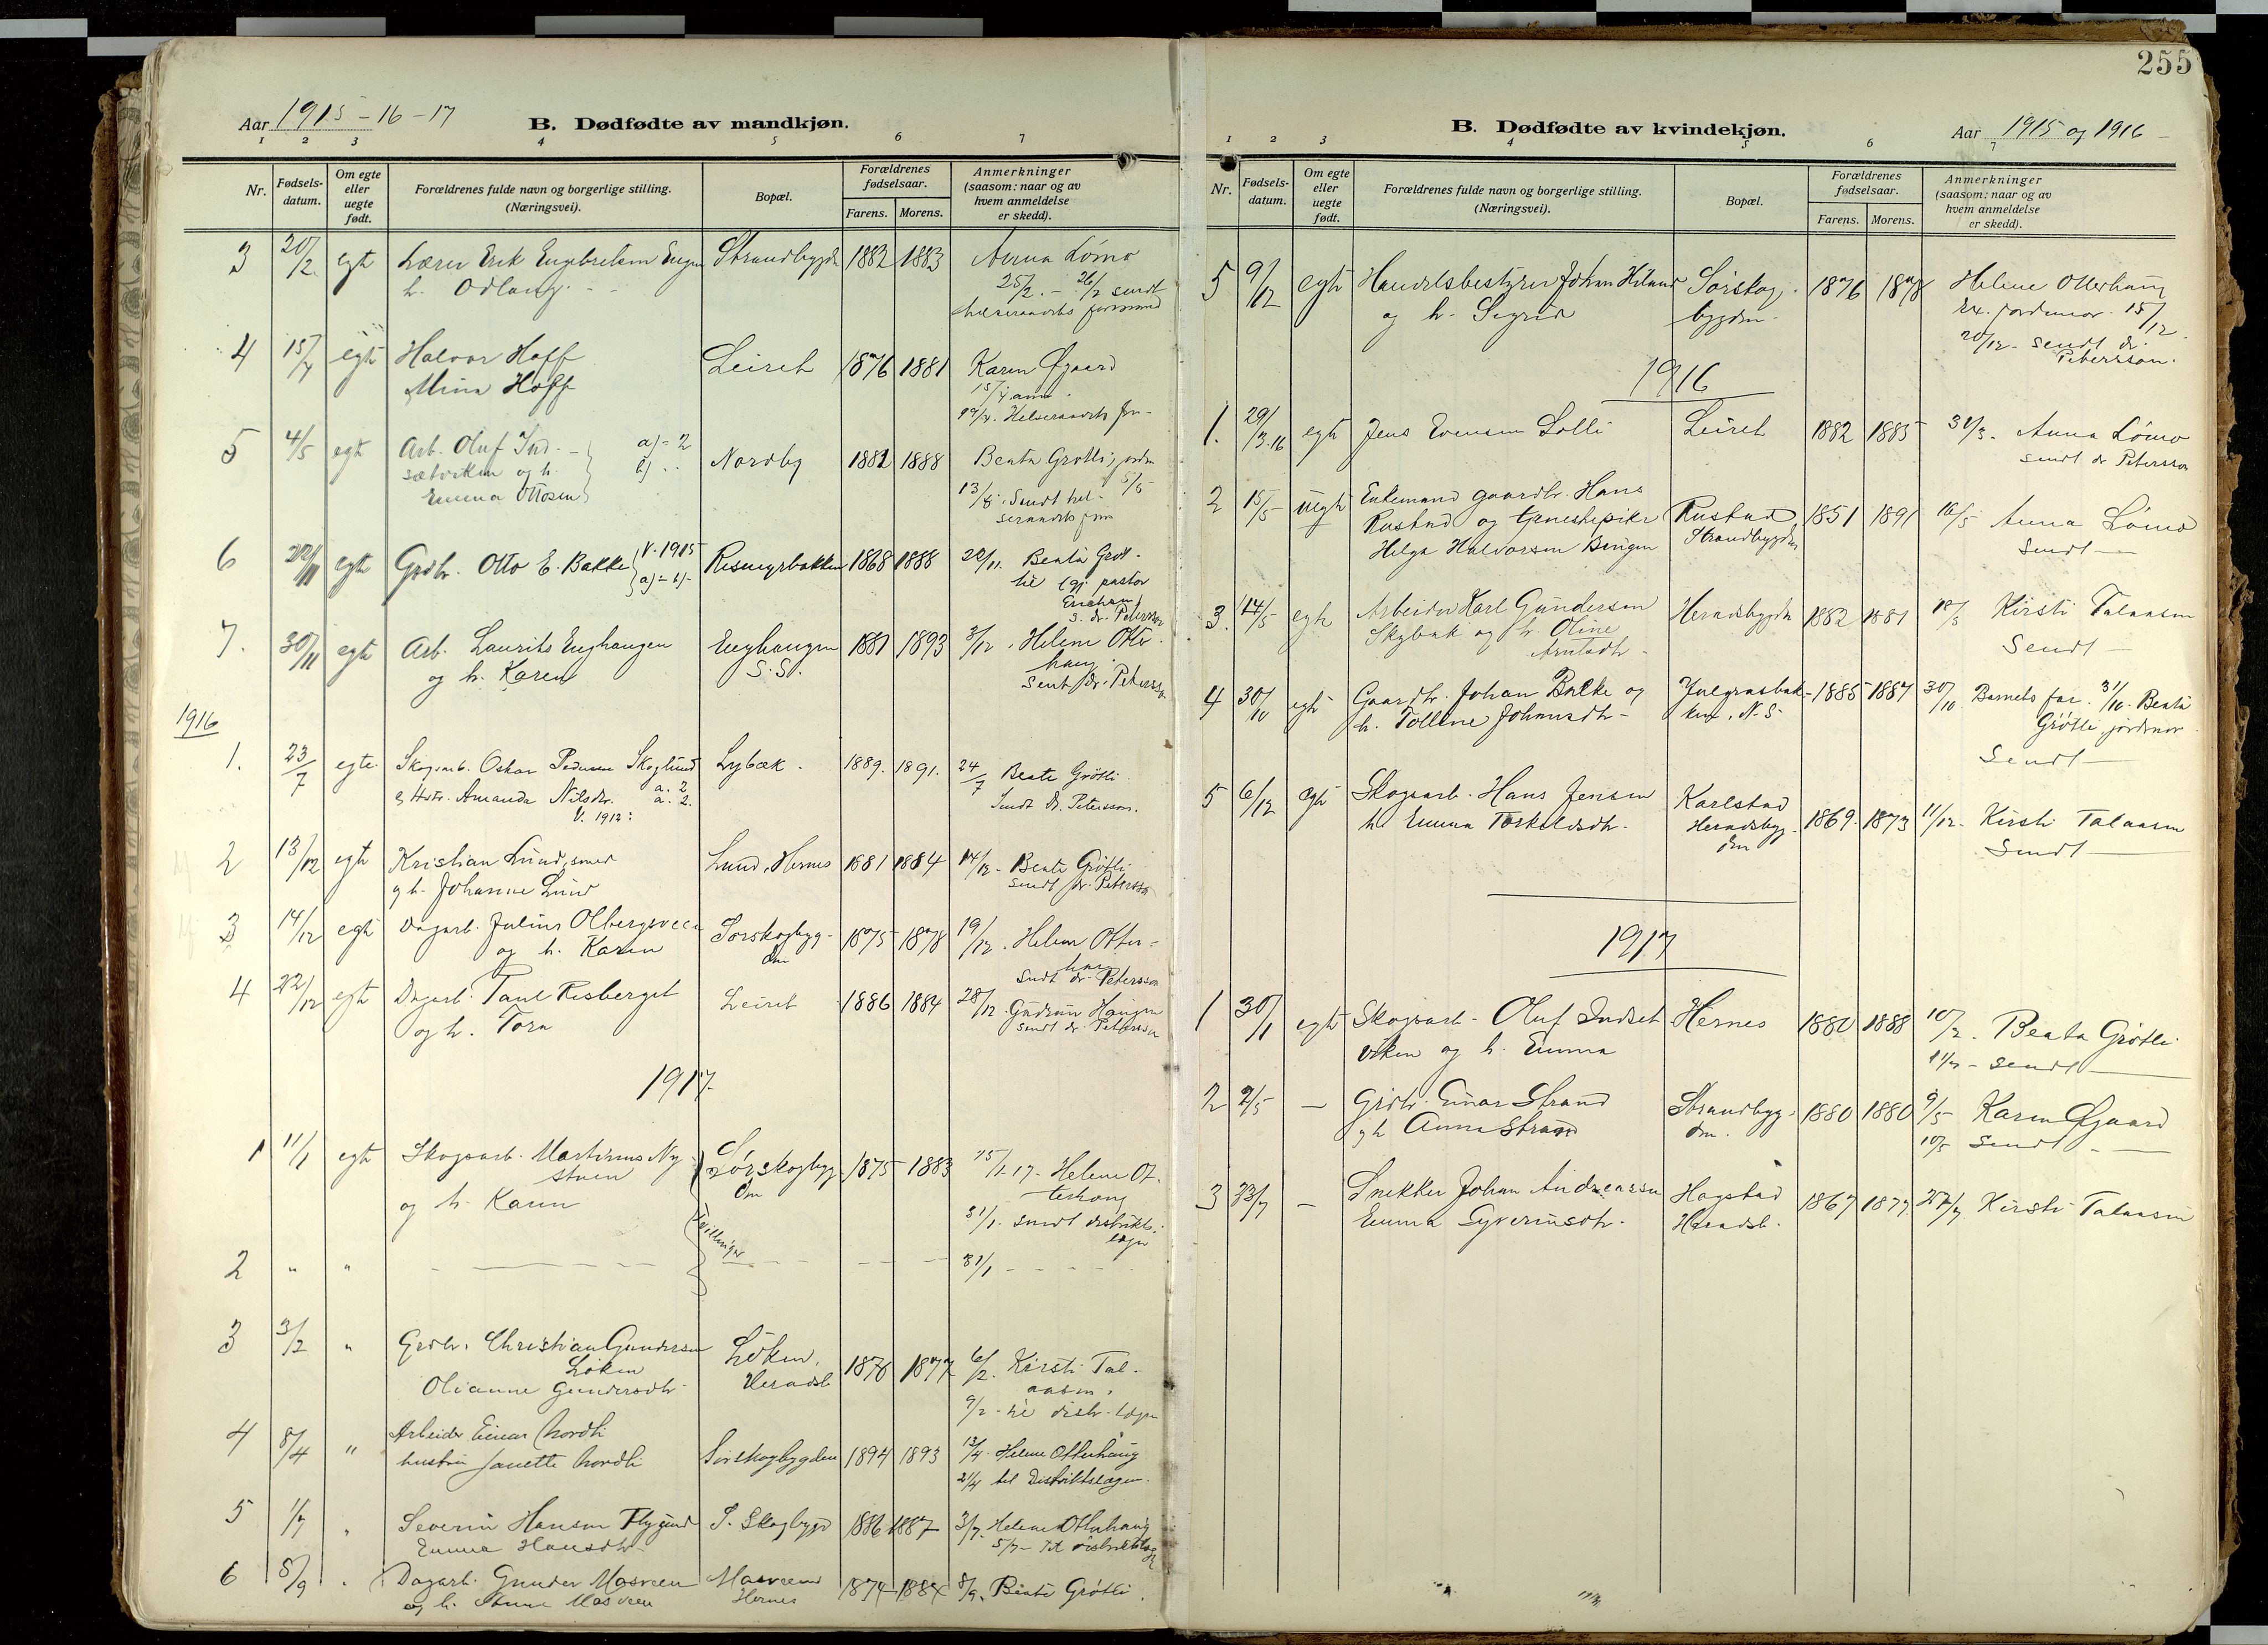 255
Aar 1915-16-17
B. Dødfødte av mandkjøn.
1 2 3 4 5 6 7
Nr.
Fødsels-
datum.
Om egte
eller
uegte
født.
Forældrenes fulde navn og borgerlige stilling.
(Næringsvei).
Bopæl.
Forældrenes
fødselsaar.
Farens. Morens.
Anmerkninger
(saasom: naar og av
hvem anmeldelse
er skedd).
3 20/2 egte Lærer Erik Engebretsen Strandbygda 1882 1883 Anna Lømo
h. 25/2. - 26/2 sendt
4 15/4 egte Halvor Hoff Leiret 1876 1881 Karen Øgaard
Mina Hoff 15/4 anm.
19/4. Helseraadets
5 4/5 egte Arb. Oluf Ind- a) = 2 Nordby 1882 1888 Beata Grötli, jordm
sætviken og h. b) 5/5
Emma Ottosen 13/5. Sendt hel-
seraadets
6 22/11 egte Grdbr. Otto E. Bakke V. 1915 1868 1888 22/11. Beata Grøt-
a) = b) - pastor
s. dr. Petersson
7. 30/11 egte Arb. Laurits Enghaugen Enghaugen 1881 1893 2/12. Helene Otter-
og h. Karen S.S. haug
sent dr. Petersson
1916
1. 23/7 egte Skogsarb. Oskar Pedersen Skoglund Lybæk. 1889. 1891. 24/7 Beate Grötli
Amanda Nilsdr. a. 2 a. 2. Sendt Dr. Petersson.
V. 1912:
2 13/12 egte Kristian Lund, smed Lund, Hernes 1881 1884 14/12 - Beate Grötli
og h. Johanne Lund sendt dr. Petersson
3 14/12 egte Dagarb. Julius Olbergsveen Sørskogbyg- 1875 1878 19/12. Helene Otter-
og h. Karen den haug
Sendt dr. Petersson
4 22/12 egte Dagarb. Paul Risberget Leiret 1886 1884 28/12 Gudrun Haugen
og h. Tora sendt dr. Petersson
1917
1 11/1 egte Skogsarb. Martinius Ny- Sørskogbyg- 1875 1883 15/1-17- Helene Ot-
stuen den terhaug
og h. Karen 31/1. sendt distrikts-
Tvillinger læge
2 " " 31/1 -
3 3/2 " Grdbr. Christian Gundersen Løken, 1876 1877 6/2. Kirsti Tal-
Løken Heradsb aasen.
Olianne Gundersdtr. 9/2 - til distr. lægen
4 8/4 " Arbeider Einar Nordli Sørskogbygden 1894 1893 13/4. Helene Otterhaug
hustru Janette Nordli 21/4 til Distriktslægen.
5 1/7 " Severin Hansen S. Skogbygd 1886 1887 3/7. Helene Otterhaug
Emma Hansdtr. 5/7 - til distriktslæge
6 8/9 " Dagarb. Gunder Masveen Masveen 1874 1884 8/9. Beate Grötli.
og h. Anne Masveen Hernes
B. Dødfødte av kvindekjøn.
Aar 1915 og 1916
1 2 3 4 5 6 7
Nr.
Fødsels-
datum.
Om egte
eller
uegte
født.
Forældrenes fulde navn og borgerlige stilling.
(Næringsvei).
Bopæl.
Forældrenes
fødselsaar.
Farens. Morens.
Anmerkninger
(saasom: naar og av
hvem anmeldelse
er skedd).
5 9/12 egte Handelsbestyrer Johan Sørskog- 1876 1878 Helene Otterhaug
og h. Sigrid bygden ex. jordemor. 15/12
20/12 - sendt dr.
Petersson.
1916
1. 29/3-16 egte Jens Evensen Lolli Leiret 1882 1885 31/3. Anna Lömo
sendt dr Petersson
2 15/5 uegte Enkemand gaardbr. Hans Rustad 1851 1891 16/5 Anna Lömo
Rustad og tjenestepike Strandbygden Sendt -
Helga Halvorsen
3. 14/5 egte Arbeider Karl Gundersen Heradsbygden 1882 1881 18/5 Kirsti Talaasen
Skybak og h. Oline Sendt -
4 30/10 egte Gaardbr. Johan Bakke og 1885 1887 30/10. Barnets far. 31/10. Beata
h. Tolline Johansdtr - ken, N.S. Grötli, jordmor
Sendt -
5 6/12 egte Skogsarb. Hans Jensen Karlstad 1869. 1873 11/12 - Kirsti Talaasen
h. Emma Torkildsdtr. Heradsbyg- Sendt -
den
1917
1 30/1 egte Skogsarb. Oluf Indset- Hernes 1880 1888 10/2. Beata Grötli
viken og h. Emma 11/2 - sendt -
2 2/5 - Grdbr. Einar Strand Strandbyg- 1880 1880 9/5 Karen Øgaard
og h Anna Strand den. 10/5 sendt -
3 23/7 - Snekker Johan Andreassen Hagstad 1867 1877 27/7 Kirsti Talaasen
Emma Syverinsdtr. Heradsb.